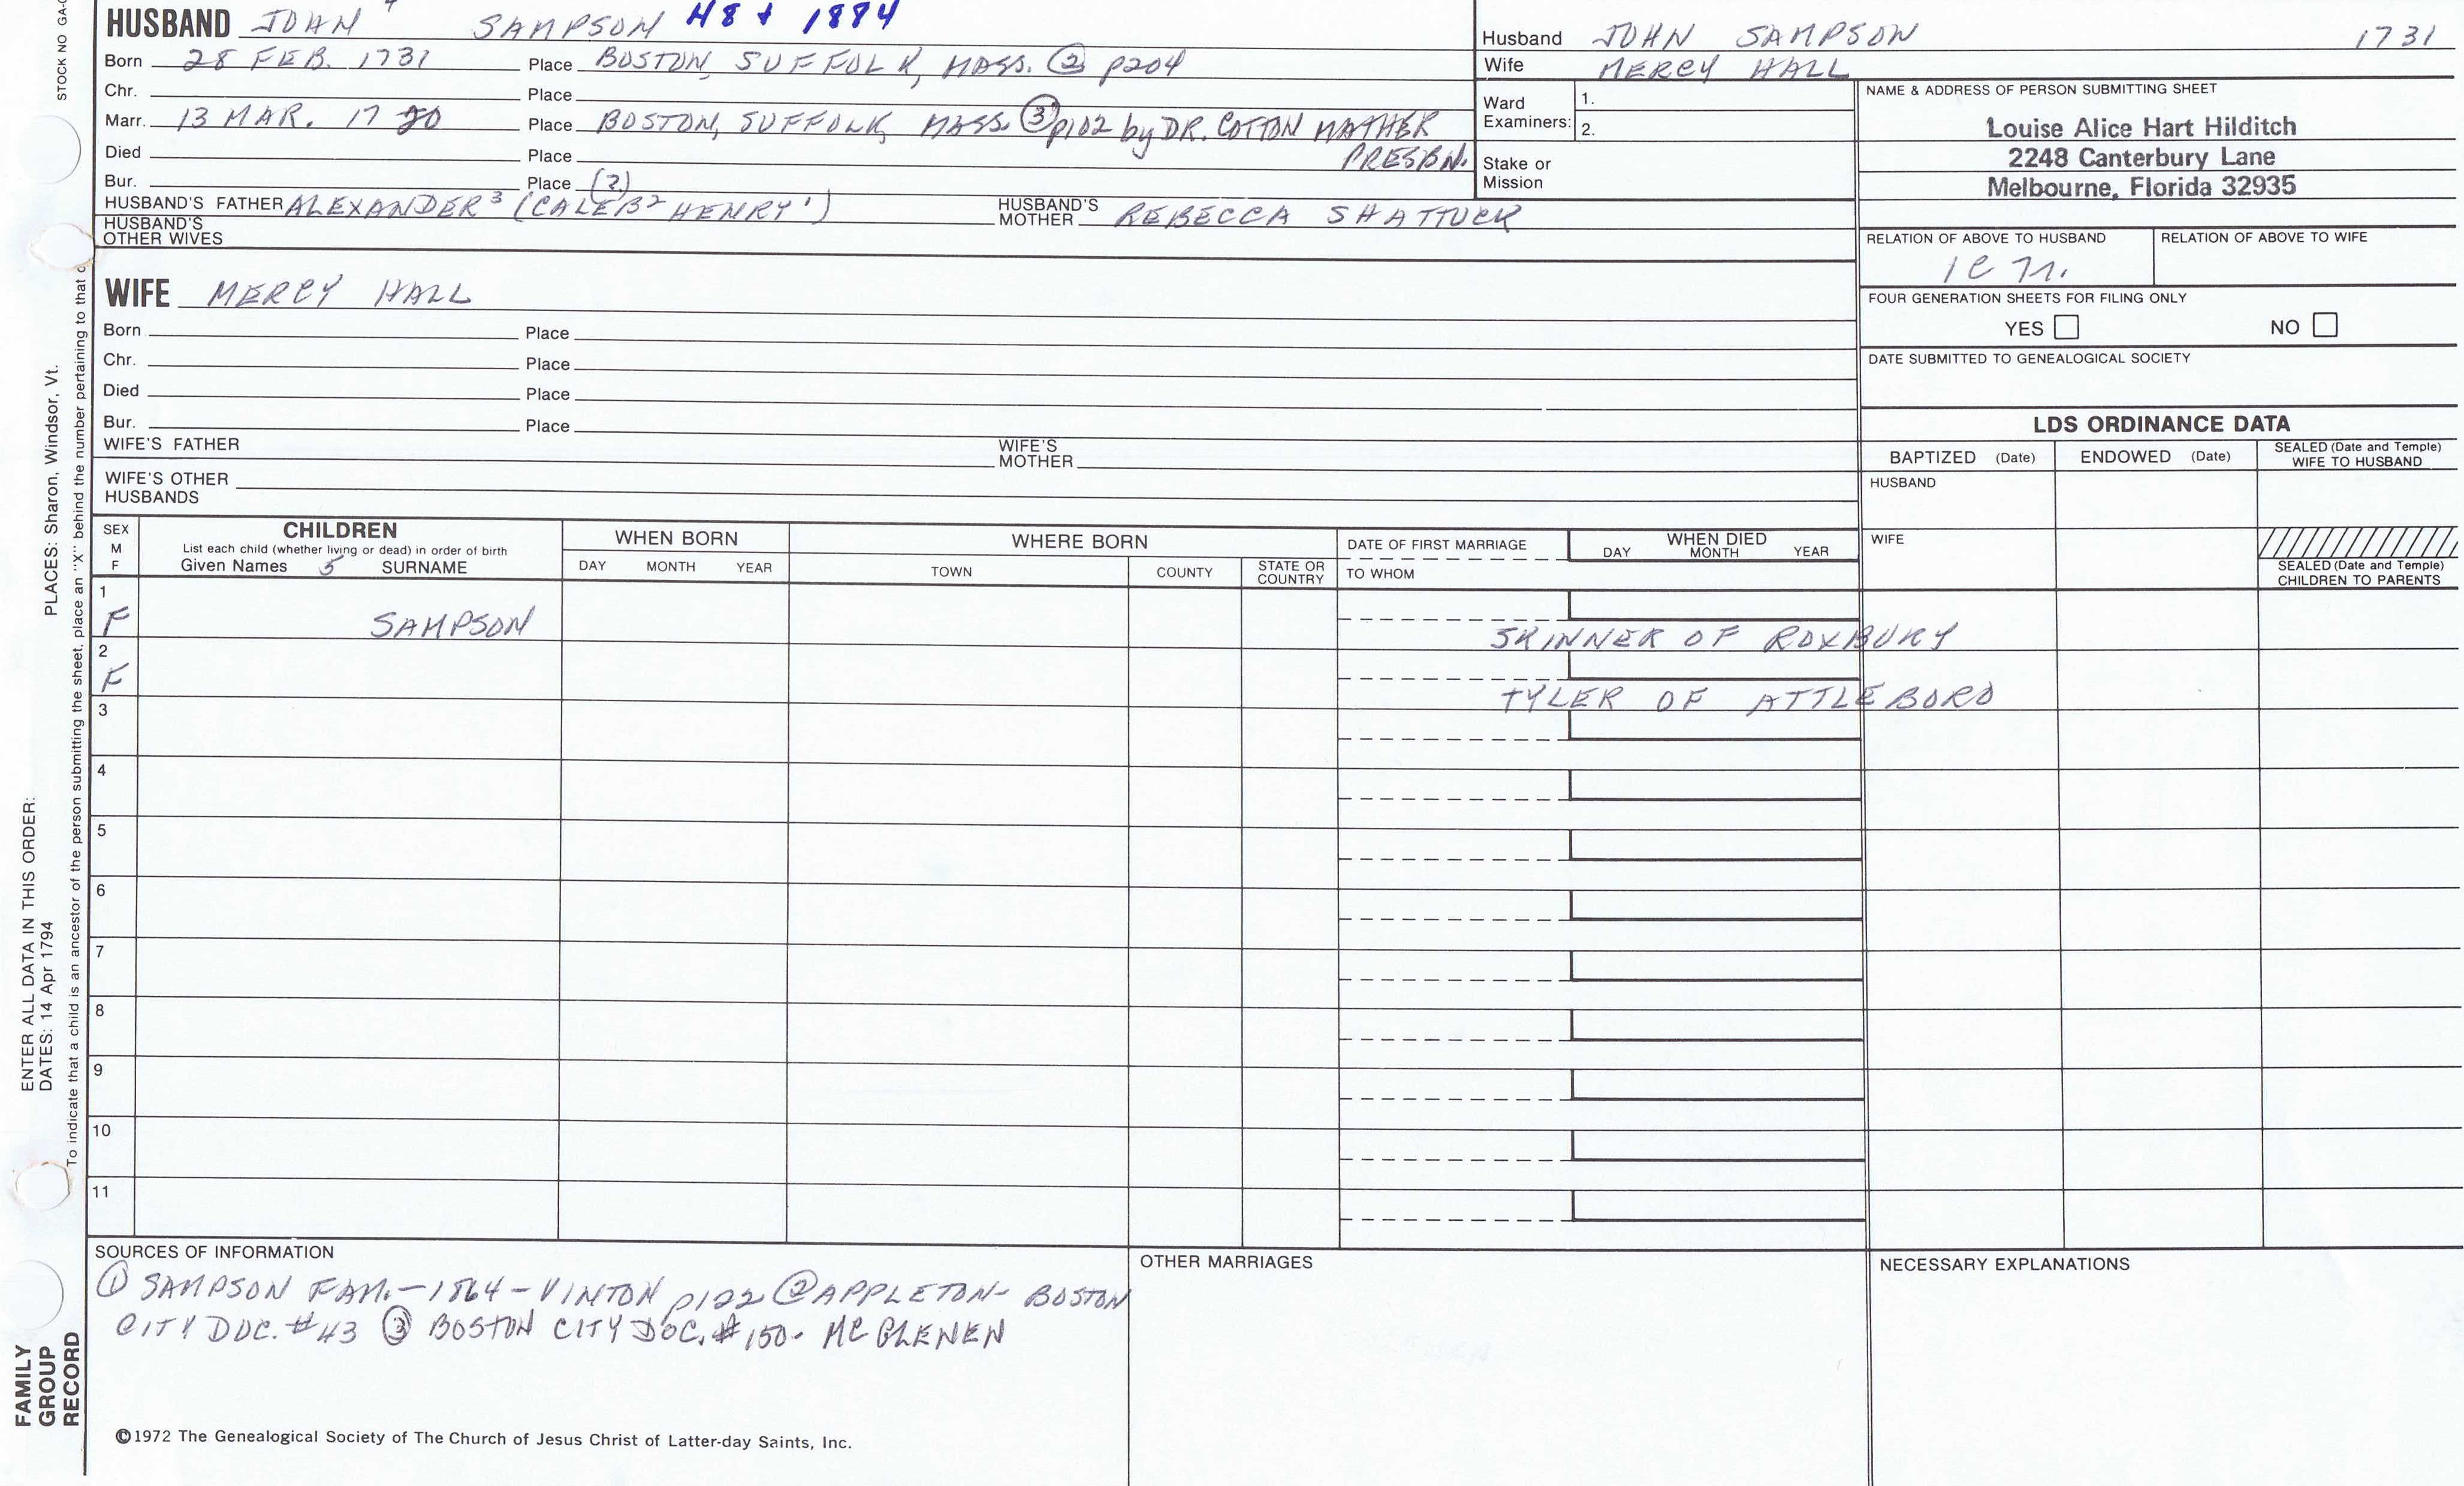 STOCK NO GA-
HUSBAND JOHN 4 SAMPSON H8 + 1884
Born 28 FEB. 1731 Place BOSTON, SUFFOLK, MASS. ② p204
Chr. Place
Marr. 13 MAR. 17 20 Place BOSTON, SUFFOLK, MASS. ③ p102 by DR. COTTON MATHER
PRESBN.
Died Place
Bur. Place (?)
HUSBAND'S FATHER ALEXANDER³ (CALEB² HENRY¹) HUSBAND'S MOTHER REBECCA SHATTUCK
HUSBAND'S OTHER WIVES
WIFE MERCY HALL
Born Place
Chr. Place
Died Place
Bur. Place
WIFE'S FATHER WIFE'S MOTHER
WIFE'S OTHER HUSBANDS
Husband JOHN SAMPSON 1731
Wife MERCY HALL
Ward Examiners: 1.
2.
Stake or Mission
NAME & ADDRESS OF PERSON SUBMITTING SHEET
Louise Alice Hart Hilditch
2248 Canterbury Lane
Melbourne, Florida 32935
RELATION OF ABOVE TO HUSBAND RELATION OF ABOVE TO WIFE
FOUR GENERATION SHEETS FOR FILING ONLY
YES NO
DATE SUBMITTED TO GENEALOGICAL SOCIETY
LDS ORDINANCE DATA
BAPTIZED (Date) ENDOWED (Date) SEALED (Date and Temple) WIFE TO HUSBAND
HUSBAND
WIFE
SEALED (Date and Temple) CHILDREN TO PARENTS
SEX M F
CHILDREN
List each child (whether living or dead) in order of birth
Given Names 5 SURNAME
WHEN BORN
DAY MONTH YEAR
WHERE BORN
TOWN COUNTY STATE OR COUNTRY
DATE OF FIRST MARRIAGE
TO WHOM
WHEN DIED
DAY MONTH YEAR
1
F SAMPSON SKINNER OF ROXBURY
2
F TYLER OF ATTLEBORO
3
4
5
6
7
8
9
10
11
SOURCES OF INFORMATION
① SAMPSON FAM.-1864-VINTON p122 ② APPLETON- BOSTON
CITY DOC. #43 ③ BOSTON CITY DOC. #150- MCGLENEN
OTHER MARRIAGES
NECESSARY EXPLANATIONS
©1972 The Genealogical Society of The Church of Jesus Christ of Latter-day Saints, Inc.
FAMILY
GROUP
RECORD
ENTER ALL DATA IN THIS ORDER:
DATES: 14 Apr 1794 PLACES: Sharon, Windsor, Vt.
To indicate that a child is an ancestor of the person submitting the sheet, place an "X" behind the number pertaining to that c